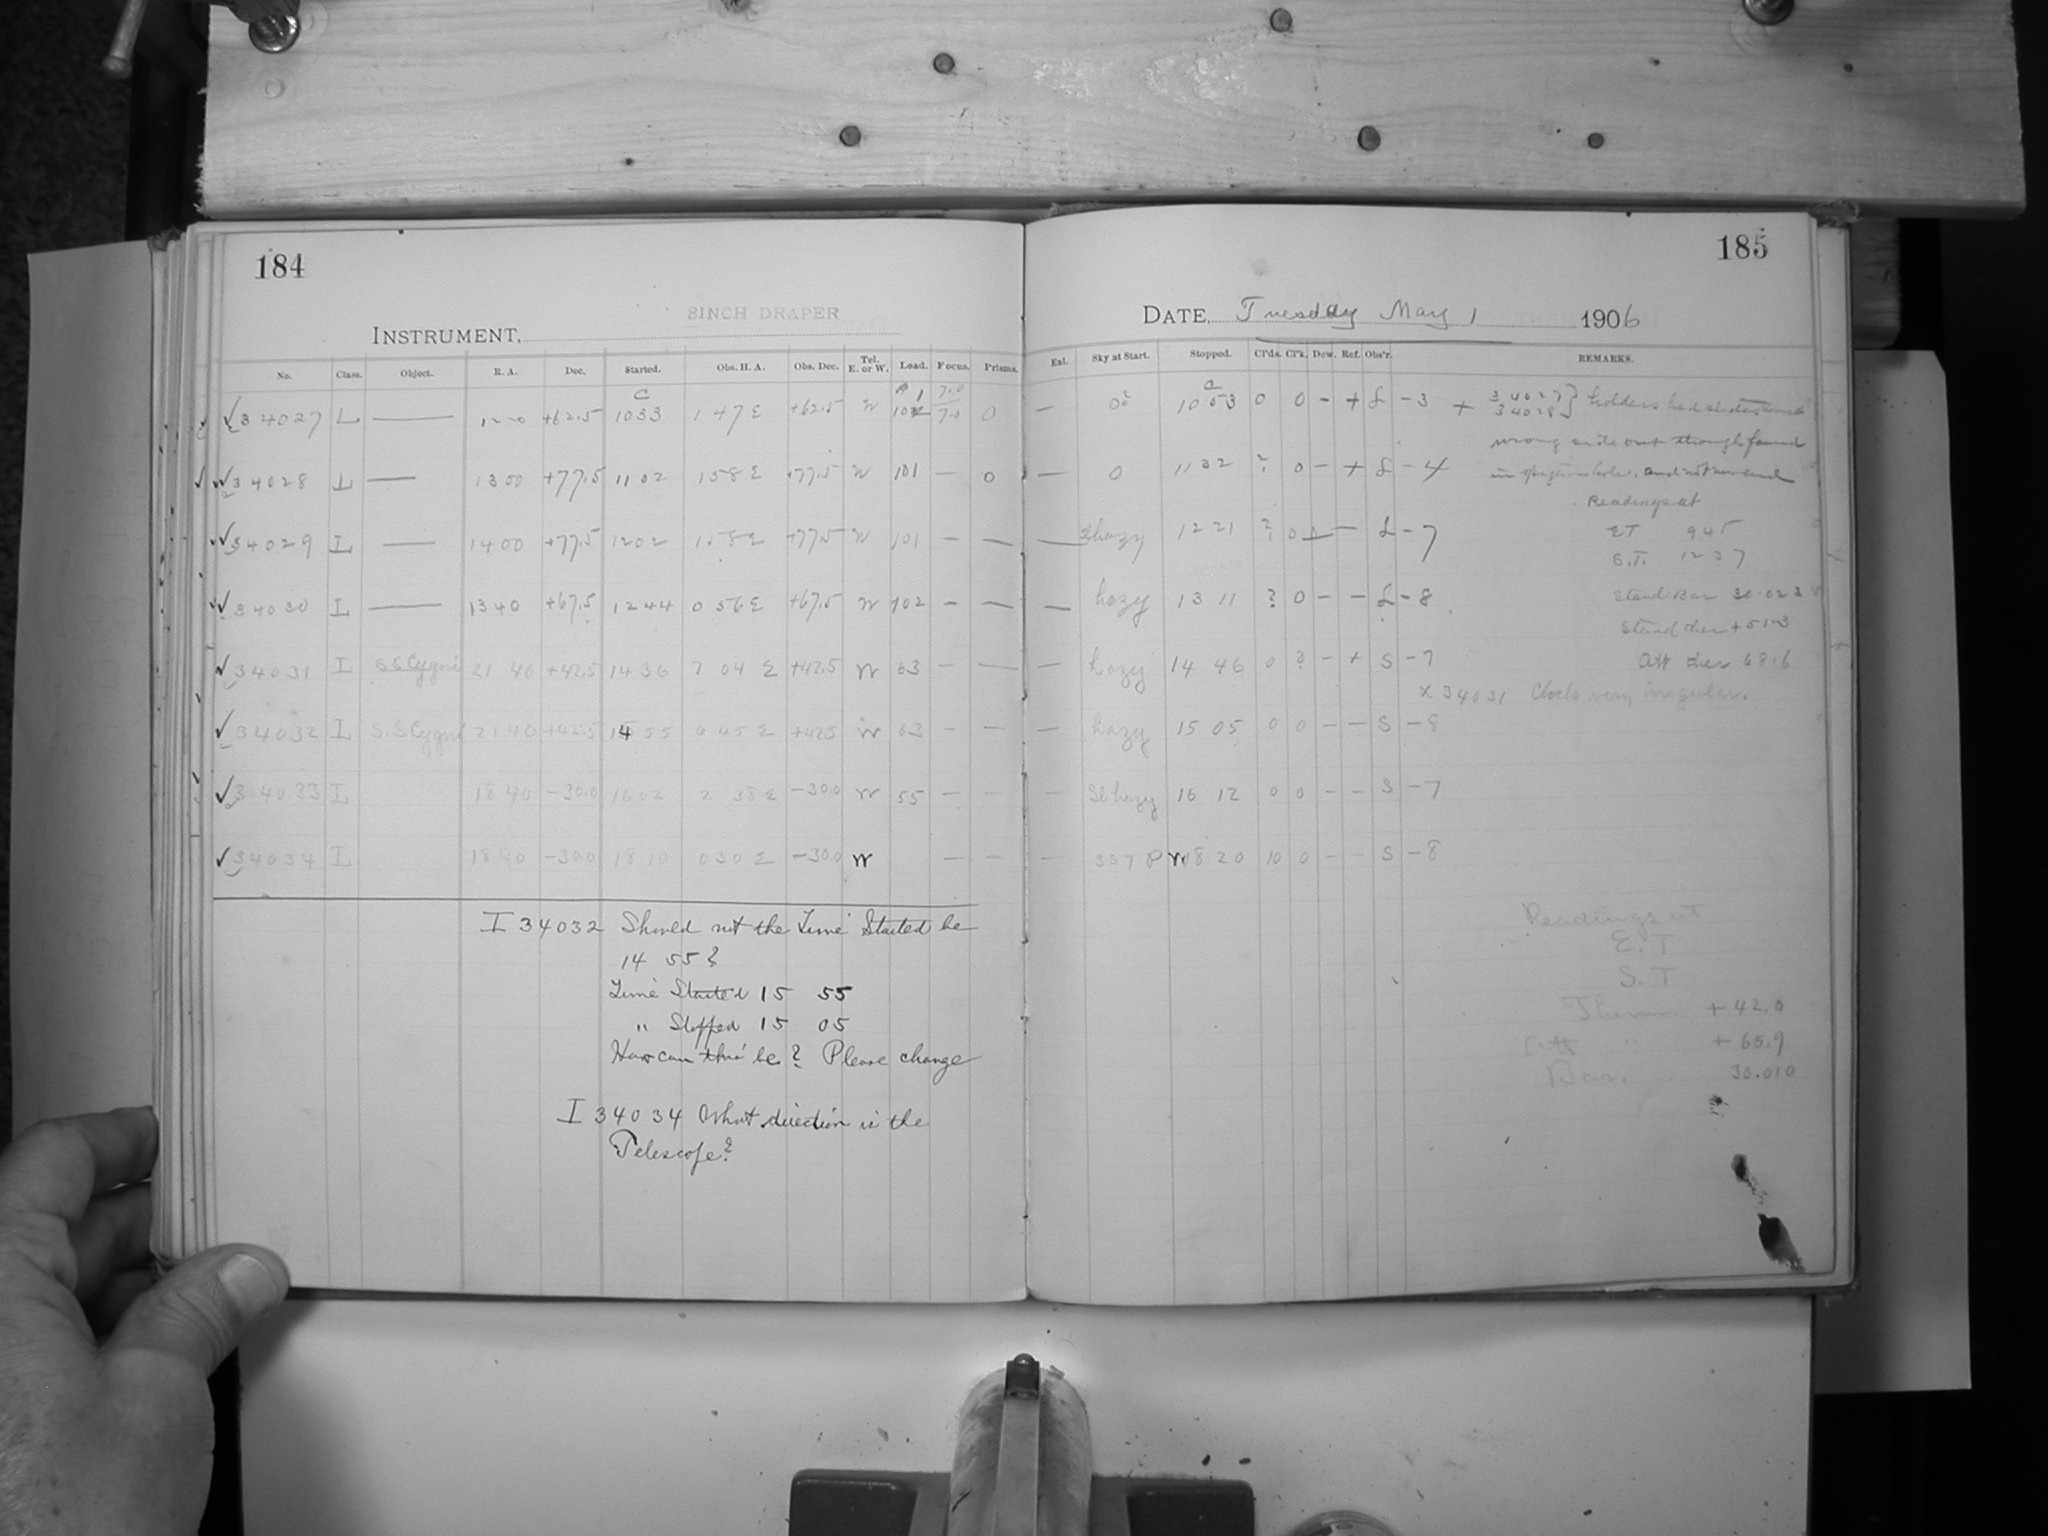 184
8INCH DRAPER
INSTRUMENT,
No. Class. Object. R. A. Dec. Started. Obs. H. A. Obs. Dec. Tel. E. or W. Load. Focus. Prisms.
34027 I — +62.5 1033 1 47 E +62.5 W 7.0 0
34028 I — 1300 +77.5 1102 1 58 E +77.5 W 101 — 0
34029 I — 1400 +77.5 1202 1 58 E +77.5 W 101 — —
34030 I — 1340 +67.5 1244 0 56 E +67.5 W 102 — —
34031 I S.S Cygni 21 40 +42.5 1436 7 04 E +42.5 W 63 — —
34032 I S.S Cygni 21 40 +42.5 1455 6 45 E +42.5 W 63 — —
34033 I 18 40 -30.0 1602 2 38 E -30.0 W 55 — —
34034 I 18 40 -30.0 18 10 0 30 E -30.0 W — —
I 34032 Should not the Time Started be
14 55?
Time Started 15 55
" Stopped 15 05
How can this be? Please change
I 34034 What direction is the
Telescope?
185
DATE, Tuesday May 1 1906
Exl. Sky at Start. Stopped. Cl'ds. Cl'k. Dew. Ref. Obs'r. REMARKS.
— 0? 10 53 0 0 — + L -3 + 34027 34028 } holders had
wrong side out though found
— 0 11 32 ? 0 — + L -4 and not
Readings at
— hazy 12 21 ? 0 — L -7 E T 9 45
S.T. 12 37
— hazy 13 11 ? 0 — — L -8 Stand Bar 30.022
Stand ther + 51.3
— hazy 14 46 0 ? — + S -7 Att ther 68.6
x 34031 Clock very irregular.
— hazy 15 05 0 0 — — S -8
— Sl hazy 16 12 0 0 — — S -7
— W 18 20 10 0 — — S -8
Readings at
E. T
S. T
Therm + 42.0
Att " + 65.9
Bar. 30.010